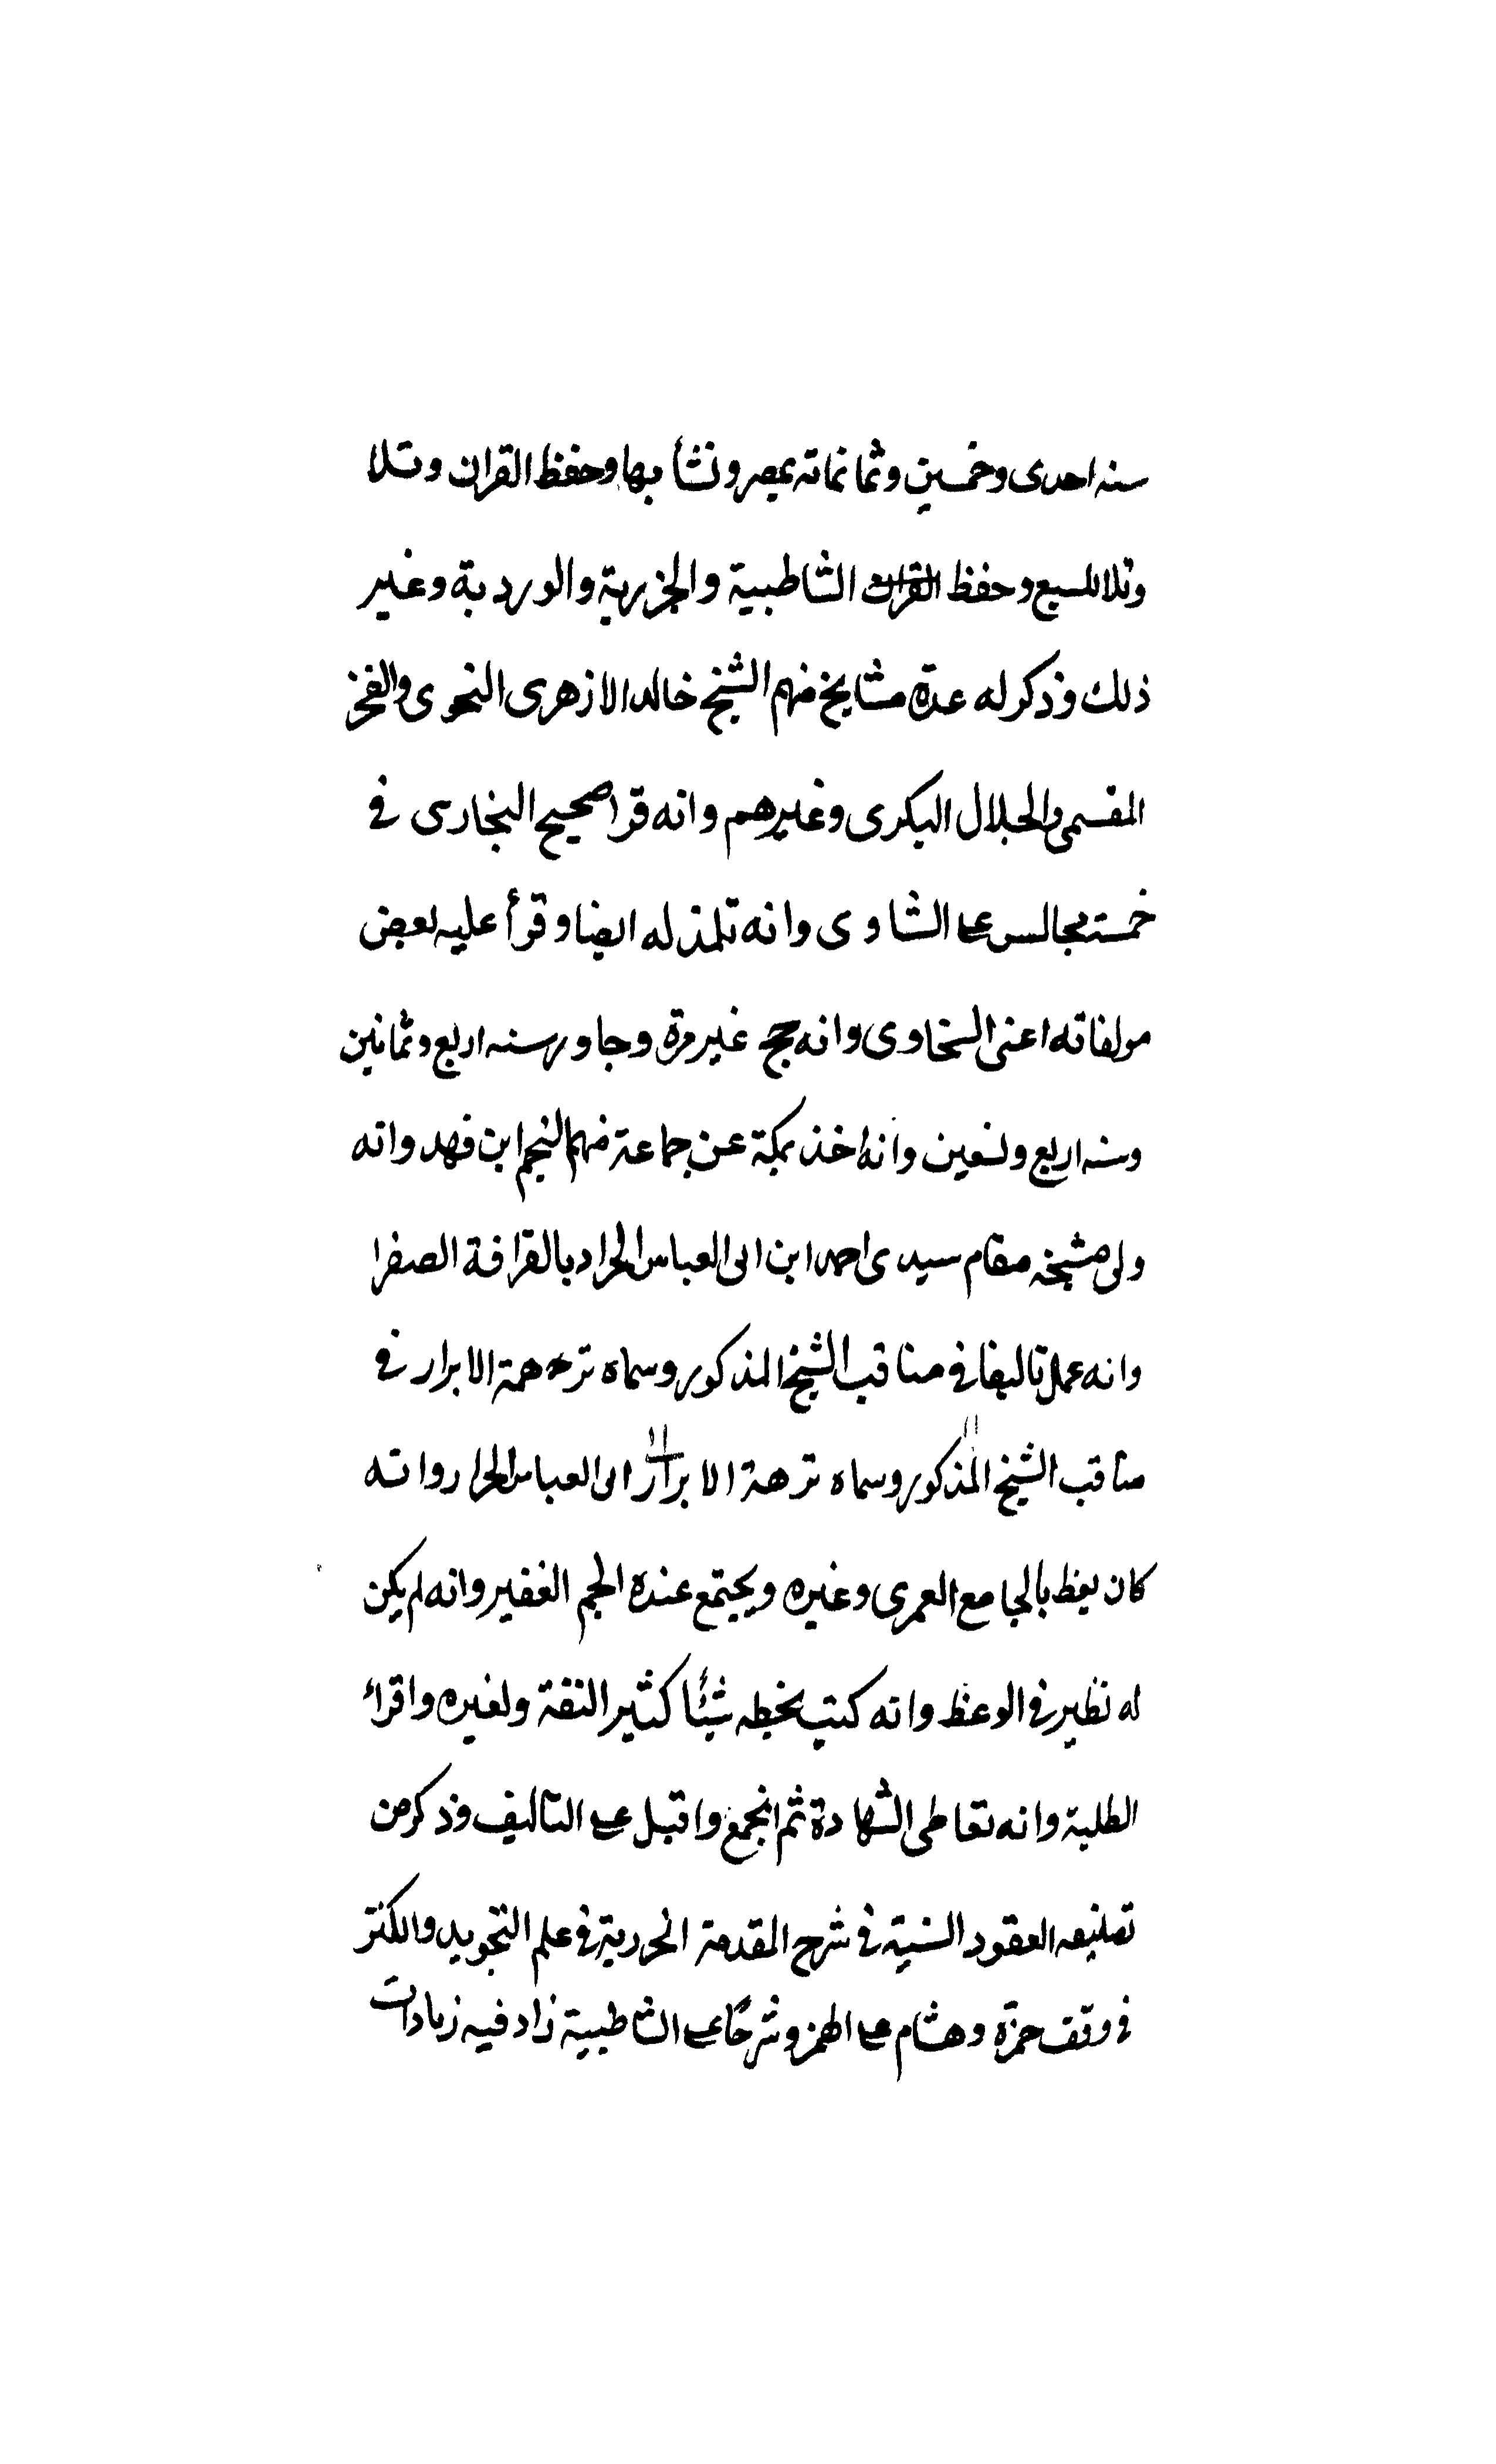 سنه احدى وخمسين وثمانمائه بمصر ونشأ بها وحفظ القران وتلا
وتلا للسبع وحفظ القران الشاطبية والجزرية والوردية وغير
ذلك وذكر له عدة مشايخ منهم الشيخ خالد الازهرى النحوى والفخر
المقسمى والجلال البكرى وغيرهم وانه قرا صحيح البخارى فى
خمسة مجالس على الشاوى وانه تلمذ له ايضا وقرأ عليه بعض
مولفاته اعنى السخاوى وانه حج غير مرة وجاور سنه اربع وثمانين
وسنه اربع وتسعين وانه اخذ بمكة عن جماعة منهم النجم ابن فهد وانه
ولى مشيخه مقام سيدى احمد ابن ابى العباس الحرار بالقرافة الصغرا
وانه عمل تاليفا فى مناقب الشيخ المذكور وسماه نزهة الابرار فى
مناقب الشيخ المذكور وسماه نزهة الابرار ابى العباس الحرار وانه
كان يعظ بالجامع العمرى وغيره ويجتمع عنده الجم الغفير وانه لم يكن
له نظير فى الوعظ وانه كتب بخطه شيئا كثير النفة ولغيره واقراء
الطلبة وانه تعاطى الشهادة ثم انجمع واقبل على التاليف وذكر من
تصانيفه العقود السنية فى شرح المقدمة الجزرية فى علم التجويد والكنز
فى وقف حمزة وهشام على الهمز وشرحا على الشاطبية زاد فيه زيادات